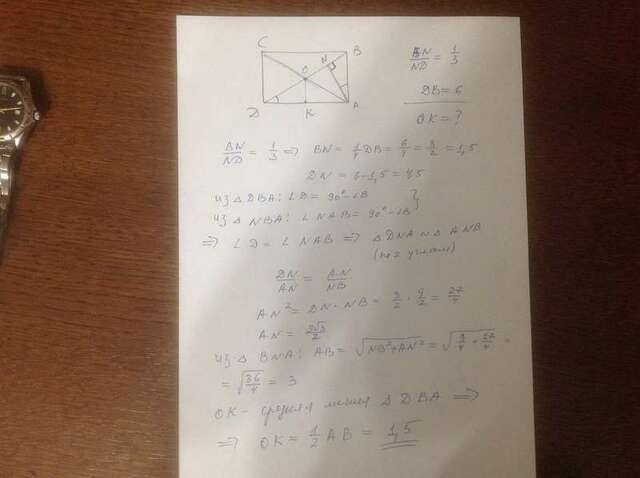 C
B
N
O
D
K
A
BN/ND = 1/3
DB = 6
OK = ?
BN/ND = 1/3 => BN = 1/4 DB = 6/4 = 3/2 = 1,5
DN = 6 - 1,5 = 4,5
из △ DBA: ∠D = 90° - ∠B
из △ NBA: ∠NAB = 90° - ∠B }
=> ∠D = ∠NAB => △ DNA ∾ △ ANB
(по 2 углам)
DN/AN = AN/NB
AN² = DN · NB = 3/2 · 9/2 = 27/4
AN = 3√3/2
из △ BNA: AB = √(NB² + AN²) = √(9/4 + 27/4) =
= √(36/4) = 3
OK - средняя линия △ DBA =>
=> OK = 1/2 AB = 1,5